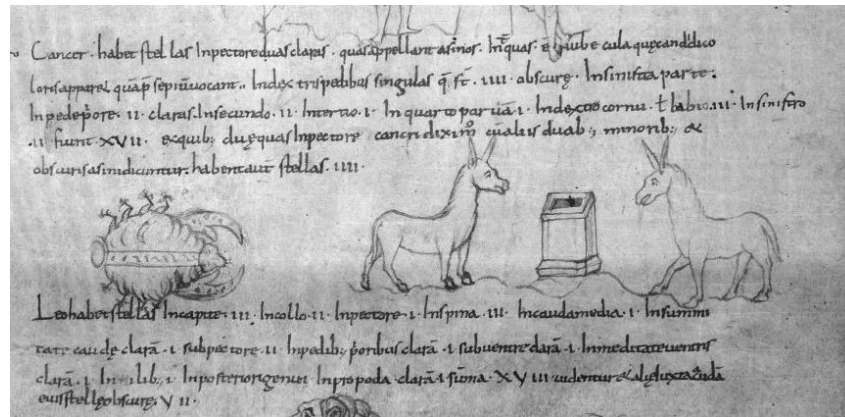 Cancer · habet stellas Inpectore duas claras · quas appellant asinos · Inr quas · ē nube cula quę candido
loris apparet quā p̄ sepiū uocant .. Index tris pedibus singulas q̄ . fc̄ . IIII · obscurę · In sinistra parte ;
In pede p̄ore · II · claras . In secundo . II · In tertio · I · In quarto paruā · I · In dextro cornu · ł labio . III · In sinistro
· II · fiunt · XVII · exquib; duę quas Inpectore cancri dixim; cū aliis duab; minorib; &
obscuris asini dicuntur · habent aut̄ stellas · IIII ·
Leo habet stellas In capite · III · In collo · II · In pectore · I · In spina · III · In cauda media · I · In summi
tate caudę clarā · I · sub pectore · II · In pedib; p̄oribus clarā · I · sub uentre clarā · I · In medi&ate uentris
clarā · I · In posteriori genu · I · In p̄ropoda clarā · I · sūma · XVIII · uidentur & alię iuxta caudā
eius stellę obscurę; VII ·